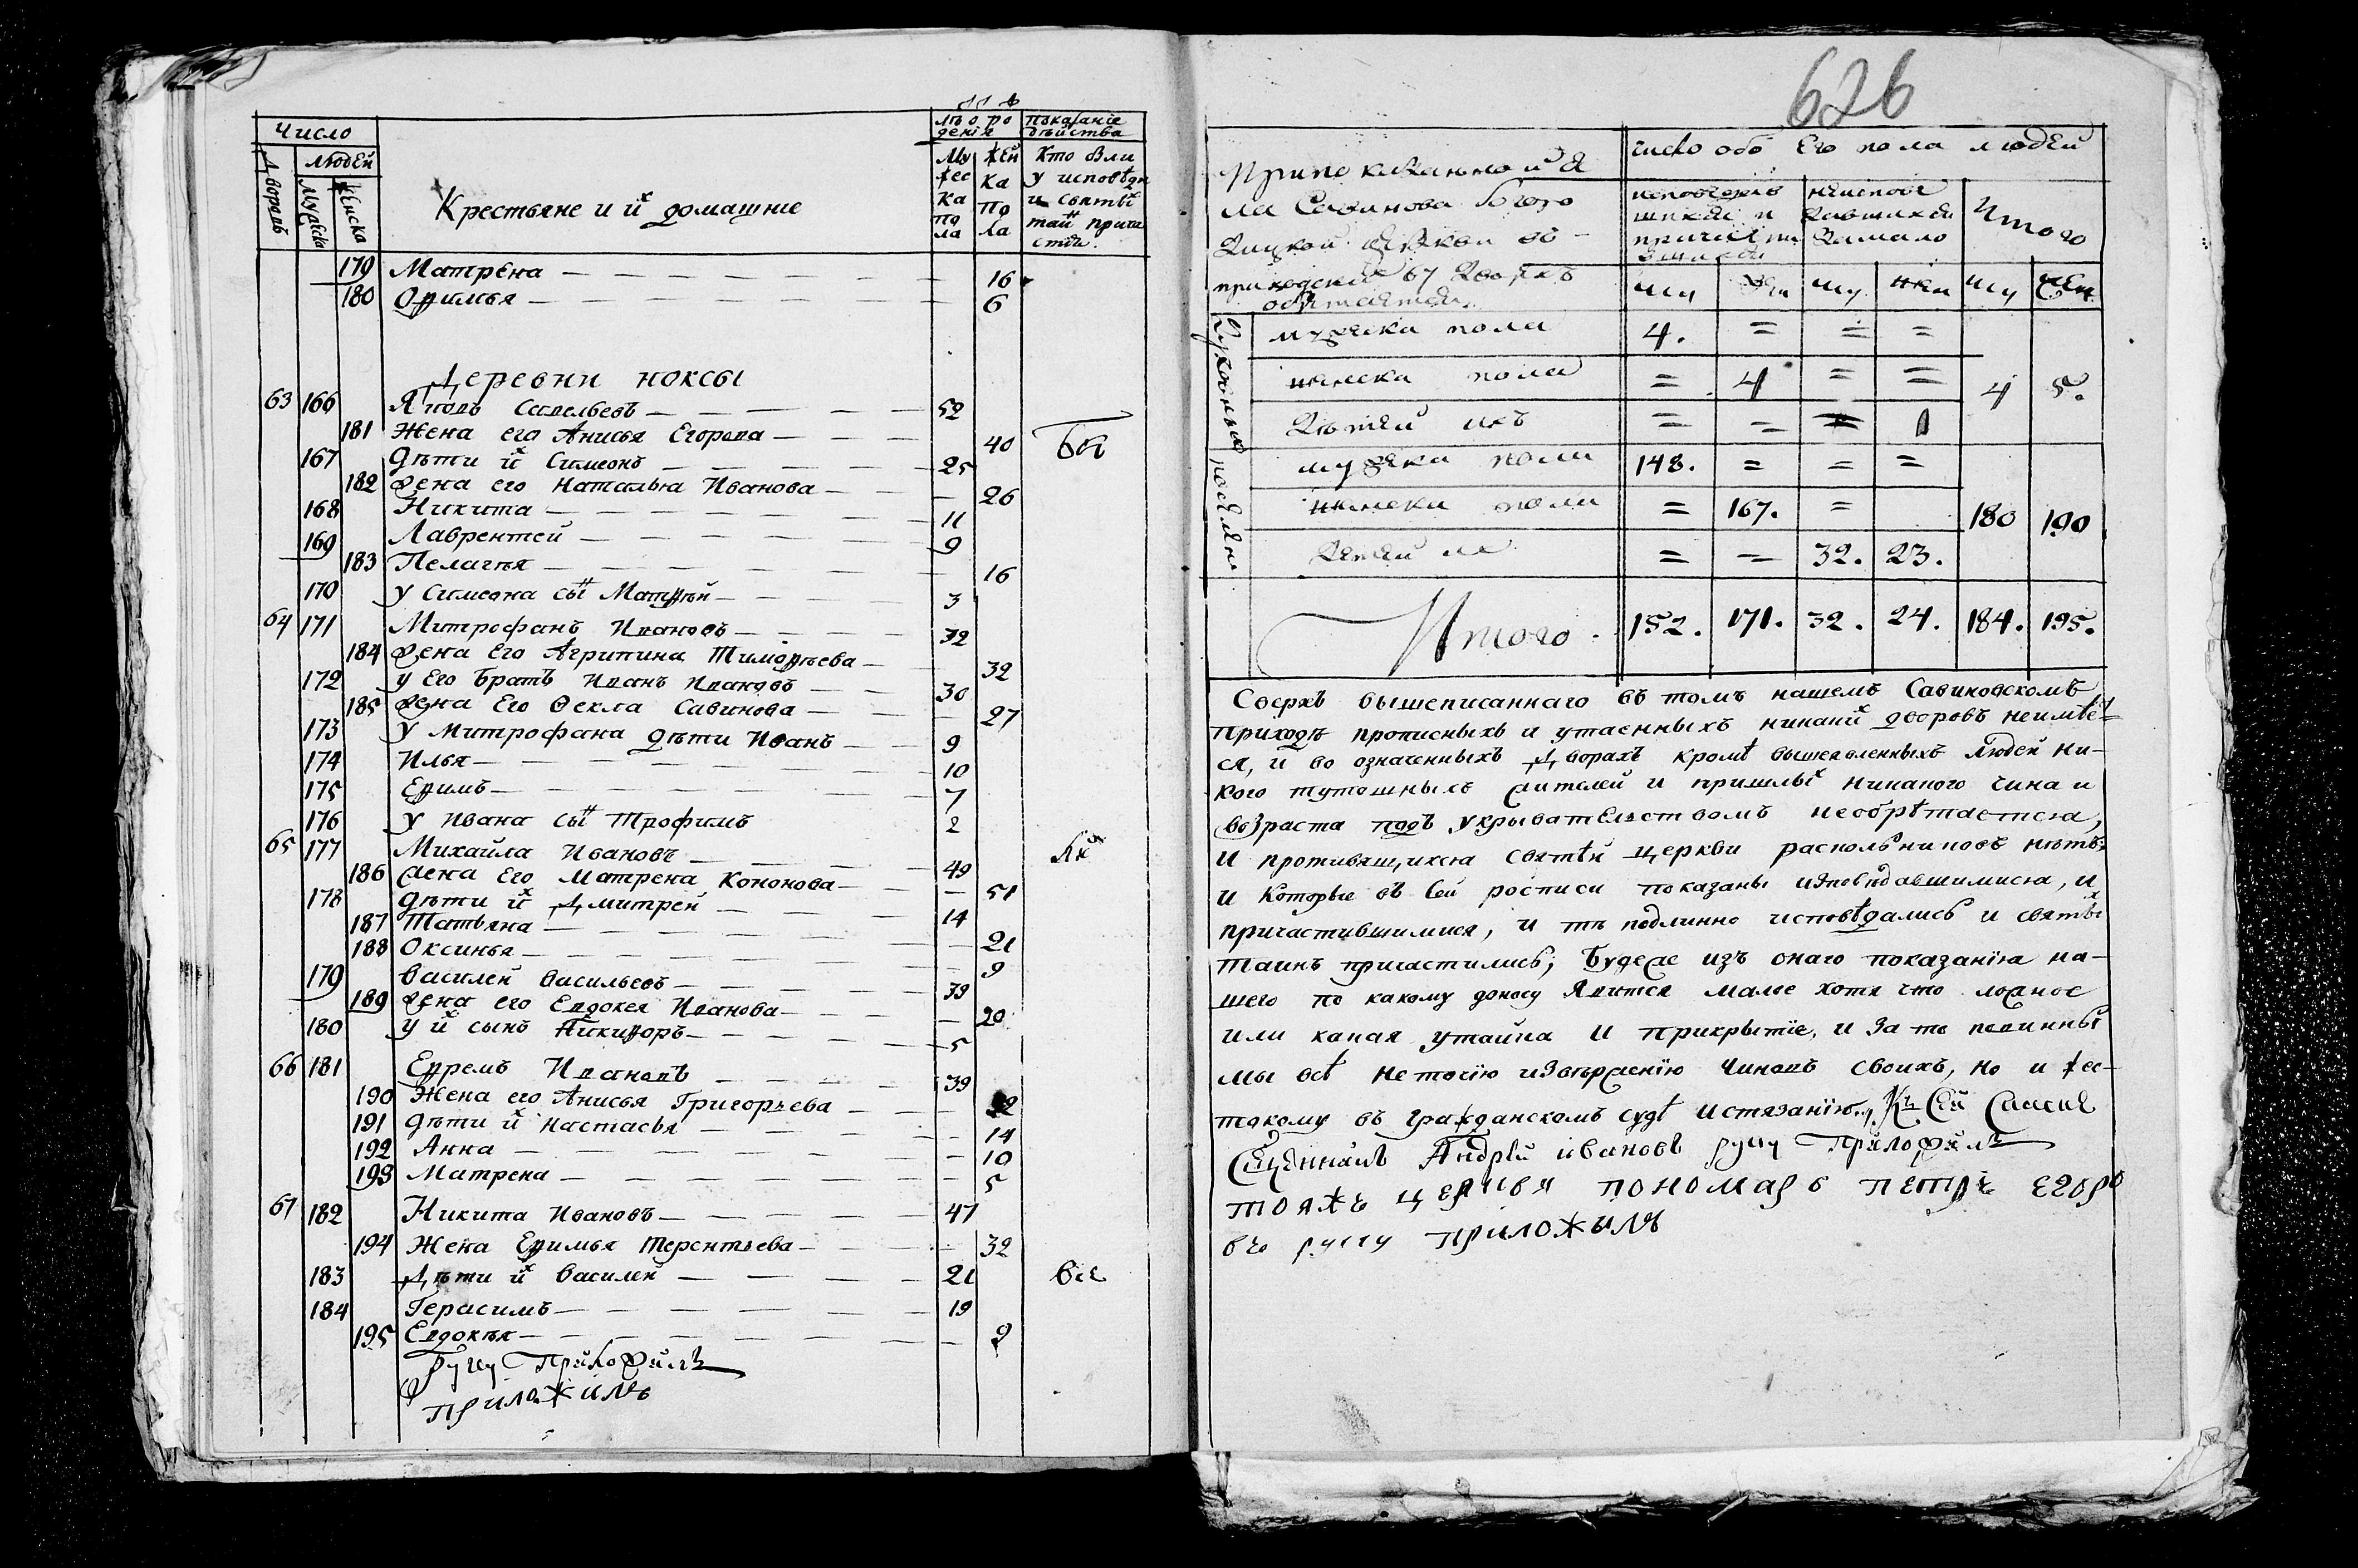 Число
людей
Дворовъ
Мужеска
Женска
Крестьяне и ихъ домашние
лѣо ро
дения
Му
жес
ка
по
ла
жен
ка
по
ла
показание
дѣйства
Кто были
у исповѣди
и святыхъ
таин прича
стия.
179 Матрена — 16
180 Офимья — 6
Деревни ноксы
63 166 Яковъ Савельевъ — 52
181 Жена его Анисья Егорова — 40
167 Дѣти их Симеонъ — 25
182 жена его Наталья Иванова — 26
168 Никита — 11
169 Лаврентей — 9
183 Пелагѣя — 16
170 у Симеона сын Матфѣй — 3
64 171 Митрофанъ Ивановъ — 32
184 жена Его Агрипина Тимофѣева — 32
172 у Его братъ Иванъ Ивановъ — 30
185 жена Его Ѳекла Савинова — 27
173 У Митрофана дѣти Иванъ — 9
174 Илья — 10
175 Ефимъ — 7
176 У Ивана сын Трофимъ 2
65 177 Михайла Ивановъ — 49
186 жена Его Матрена Кононова — 51
178 дѣти их Дмитрей — 14
187 Татьяна — 21
188 Оксинья — 9
179 Василей Васильевъ — 39
189 жена его Евдокея Иванова — 20
180 У их сынъ Никифоръ — 5
66 181 Ефремъ Ивановъ — 39
190 Жена его Анисья Григорьева —
191 дѣти их Настасья — 14
192 Анна — 10
193 Матрена — 5
67 182 Никита Ивановъ — 47
194 Жена Ефимья Терентьева — 32
183 Дѣти их Василей — 21 все
184 Герасимъ — 19
195 Евдокѣя — 9
руку Приложилъ
приложилъ
626
число обо Его пола людей
Итого
му жен му жен му жен
Духовныя
мужеска пола 4. = = =
женска пола = 4 = = 4 5.
Дѣтей ихъ = = = 1
поселяня
мужеска пола 148. = = =
женска пола = 167. = 180 190
Дѣтей их = = 32. 23.
Итого. 152. 171. 32. 24. 184. 195.
Сверхъ вышеписаннаго въ томъ нашемъ Савиновскомъ
приходѣ прописныхъ и утаенныхъ никаких дворовъ неимѣет-
ся, и во означенныхъ Дворахъ кромѣ вышеявленныхъ людей ни-
кого тутошныхъ жителей и пришлых никакого чина и
возраста подъ укрывательствомъ необрѣтается,
и противящихся святѣй церкви раскольниковъ нѣтъ;
и Которые въ Сей росписи показаны исповѣдавшимися, и
причастившимися, и тѣ подлинно исповѣдались и святых
таинъ причастились; Буде же изъ онаго показания на-
шего по какому доносу Явится малое хотя что ложное
или какая утайка и прикрытие, и за то повинны
мы всѣ неточию извержению чиновъ своихъ, но и жес-
токому въ гражданскомъ судѣ истязанию. Къ Сей
Сщенникъ Андрѣй ивановъ руку Приложилъ
тояжъ церкви пономарь петръ егоро
въ руку приложилъ